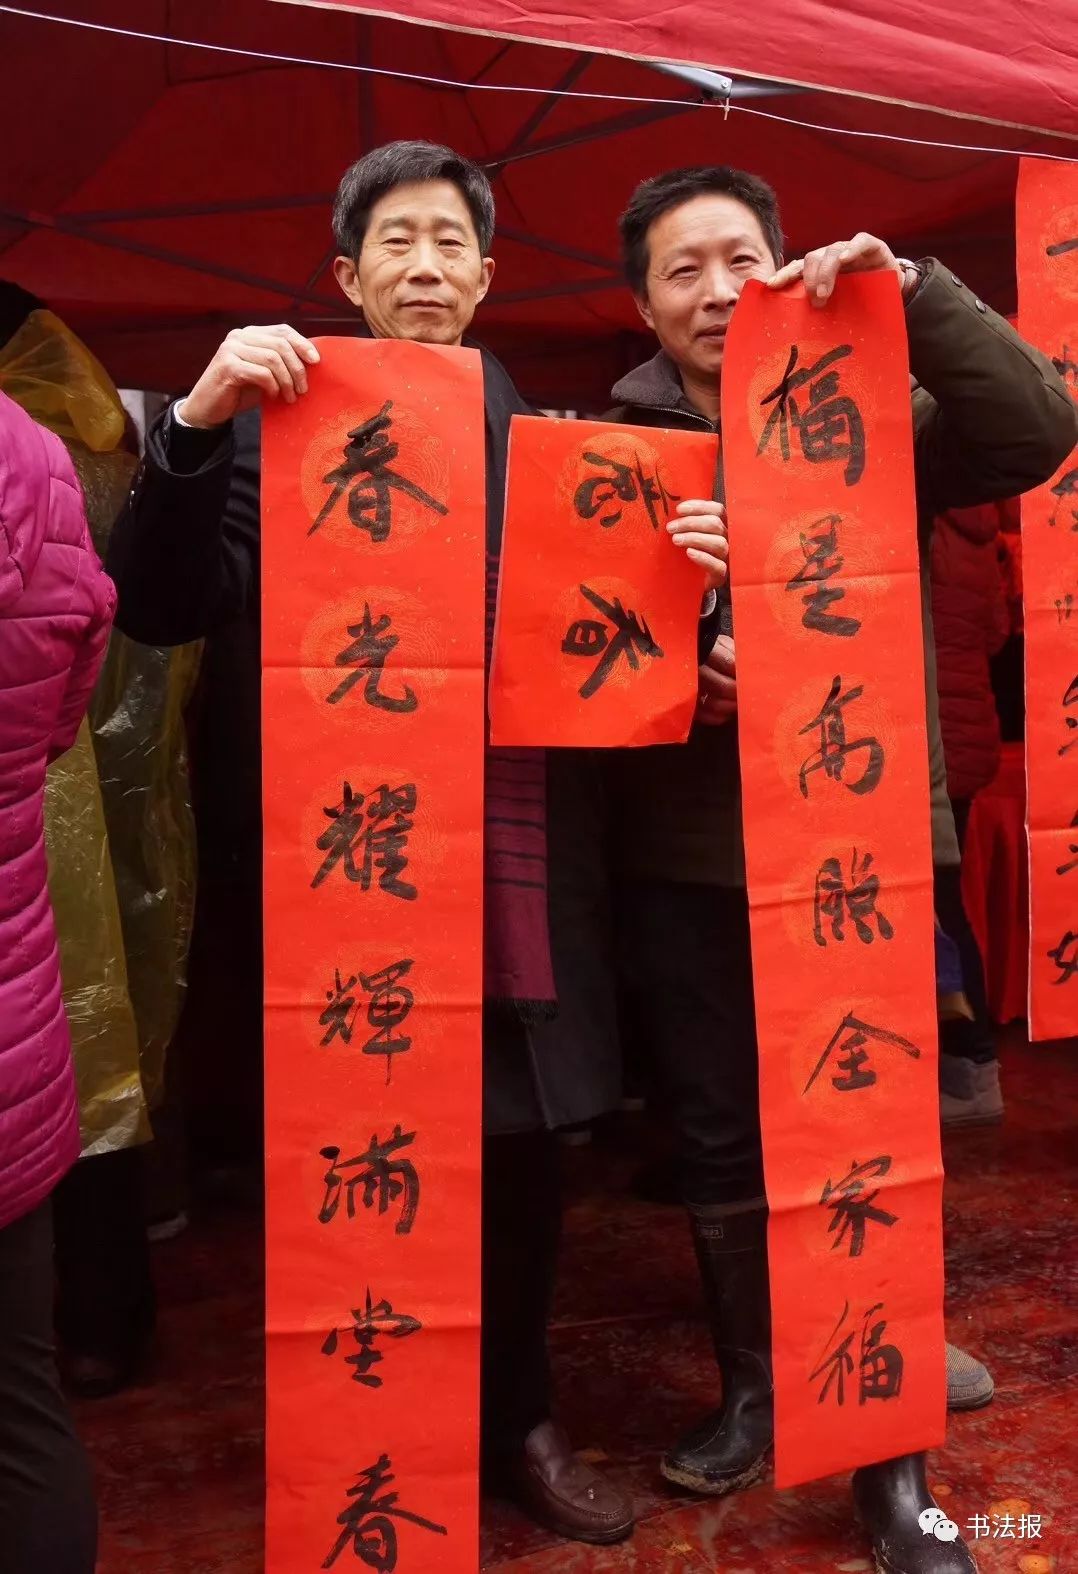 福星高照全家福
春
春光耀輝滿堂春
书法报